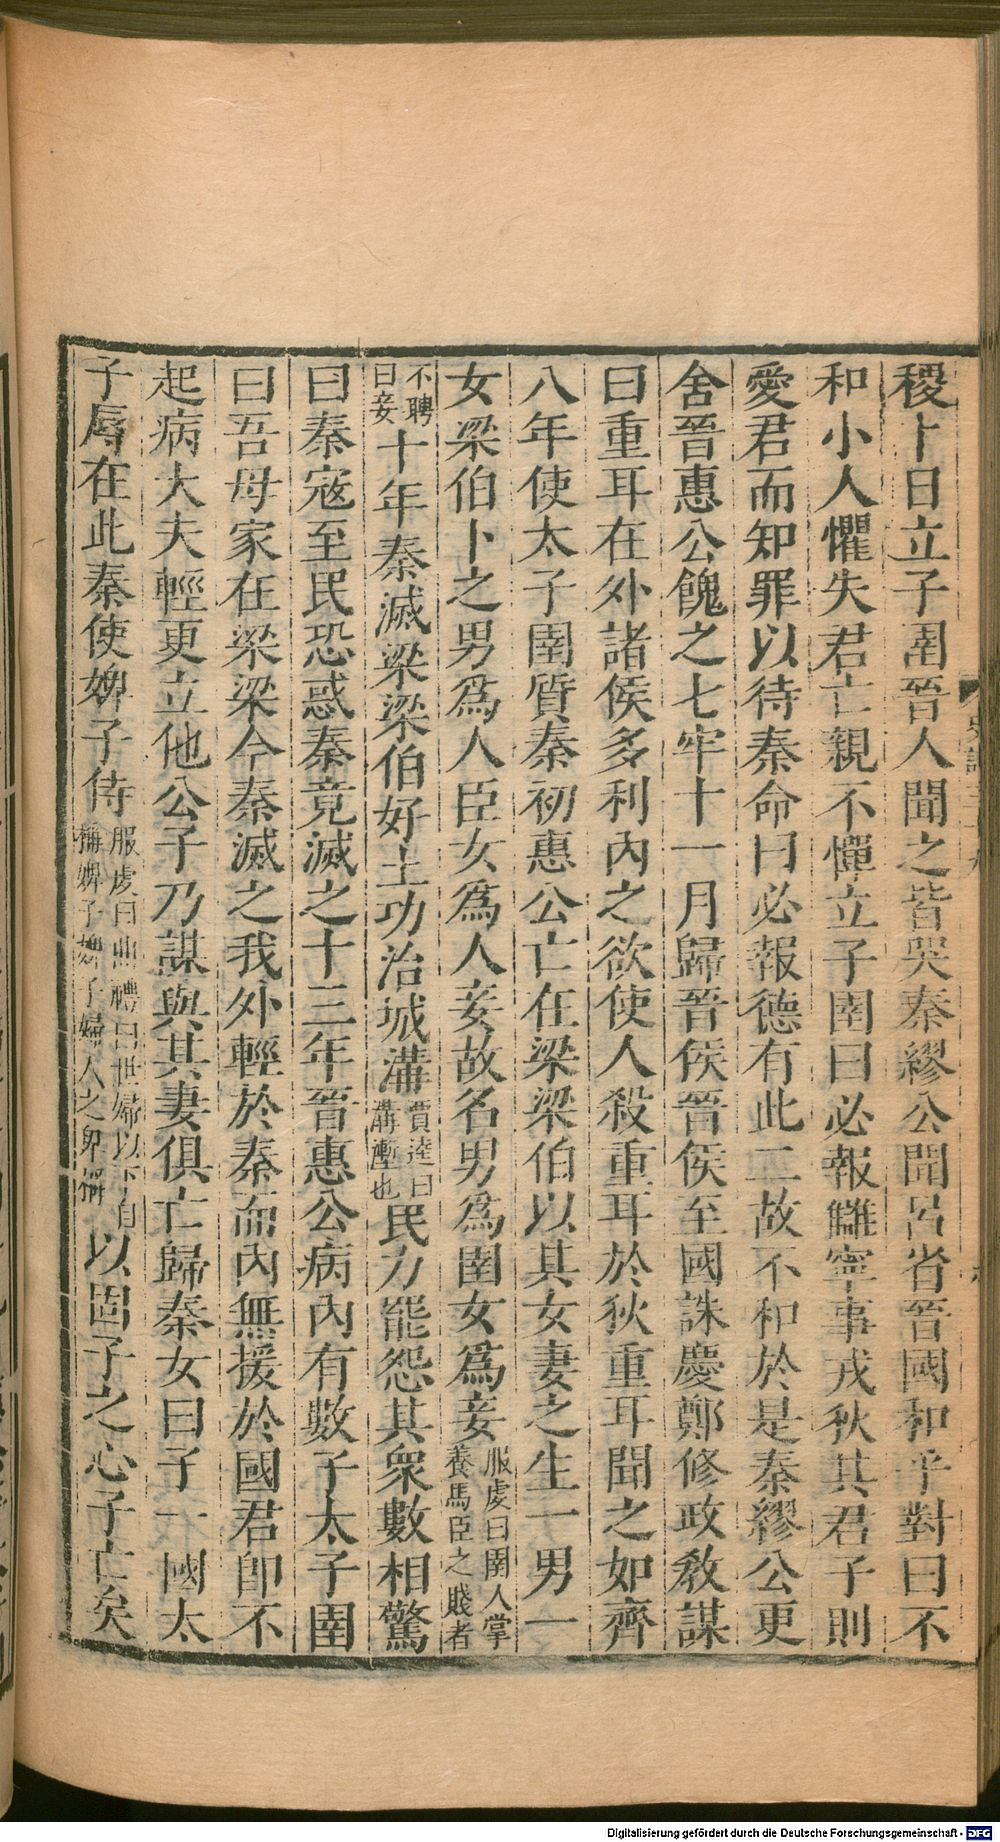 稷卜日立子圉晉人聞之皆哭秦繆公聞呂省晉國和乎對曰不
和小人懼失君亡親不憚立子圉曰必報讎寧事戎狄其君子則
愛君而知罪以待秦命曰必報德有此二故不和於是秦繆公更
舍晉惠公餽之七牢十一月歸晉侯晉侯至國誅慶鄭修政教謀
曰重耳在外諸侯多利內之欲使人殺重耳於狄重耳聞之如齊
八年使太子圉質秦初惠公亡在梁梁伯以其女妻之生一男一
女梁伯卜之男爲人臣女爲人妾故名男爲圉女爲妾服虔曰圉人掌養馬臣之賤者
不聘曰妾十年秦滅梁梁伯好土功治城溝賈逵曰溝塹也民力罷怨其衆數相驚
曰秦寇至民恐惑秦竟滅之十三年晉惠公病內有數子太子圉
曰吾母家在梁梁今秦滅之我外輕於秦而內無援於國君卽不
起病大夫輕更立他公子乃謀與其妻俱亡歸秦女曰子一國太
子辱在此秦使婢子侍服虔曰曲禮曰世婦以下自稱婢子婢子婦人之卑稱以固子之心子亡矣
Digitalisierung gefördert durch die Deutsche Forschungsgemeinschaft - DFG